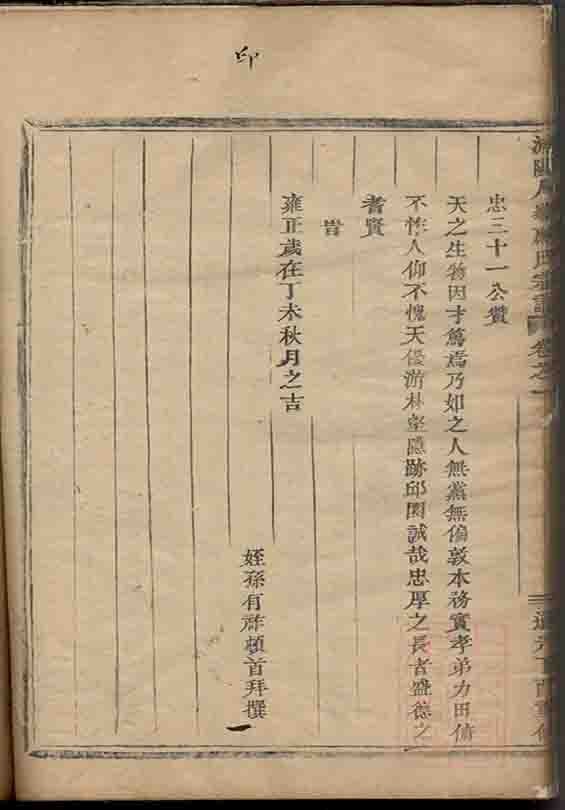 印
忠三十一公贊
天之生物因才篤焉乃如之人無黨無偏敦本務實孝弟力田俯
不怍人仰不愧天優游林壑隱跡邱園誠哉忠厚之長者盛德之
耆賢
旹
雍正歲在丁未秋月之吉
姪孫有祚頓首拜撰
氏宗譜 卷之一